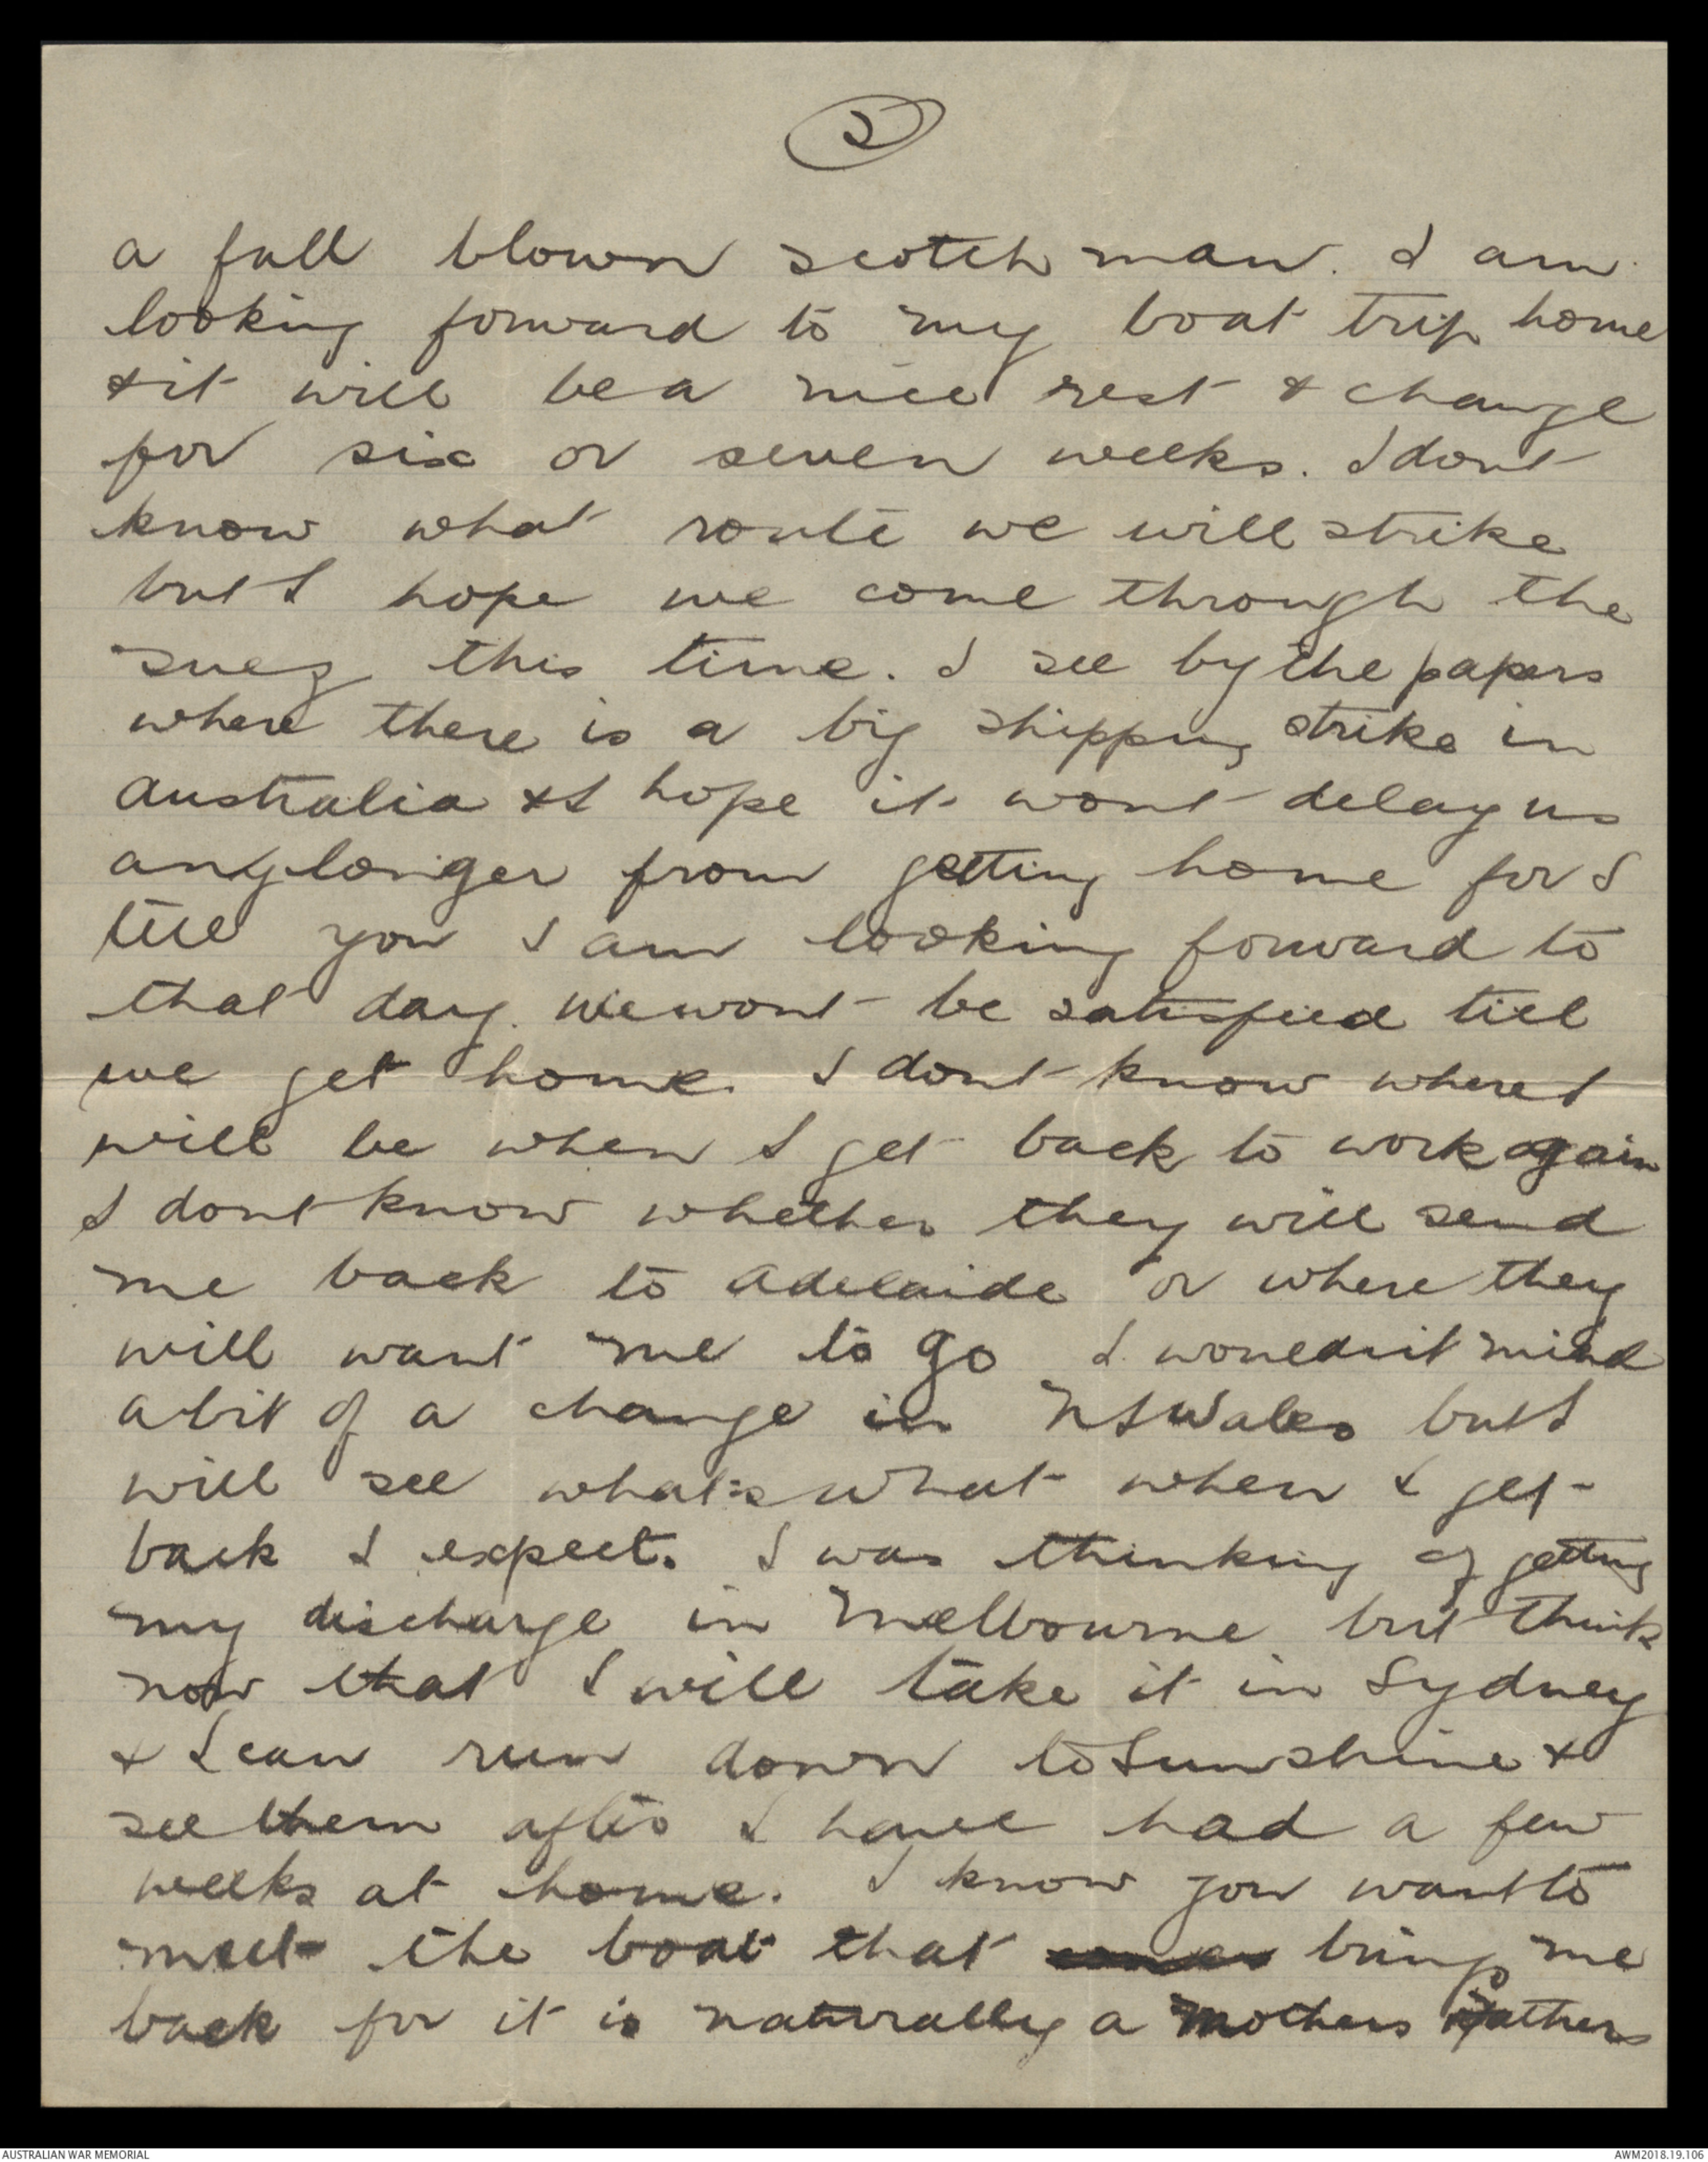 2
a full blown scotch man. I am
looking forward to my boat trip home
& it will be a nice rest & change
for six or seven weeks. I dont
know what route we will strike
but I hope we come through the
suez this time. I see by the papers
where there is a big shipping strike in
Australia & I hope it wont delay us
any longer from getting home for I
tell you I am looking forward to
that day. We wont be satisfied till
we get home. I dont know where I
will be when I get back to work again
I dont know whether they will send
me back to Adelaide or where they
will want me to go I wouldnt mind
a bit of a change in NSWales but I
will see what's what when I get
back I expect. I was thinking of getting
my discharge in Melbourne but think
now that I will take it in Sydney
& I can run down to Sunshine &
see them after I have had a few
weeks at home. I know you want to
meet the boat that brings me
back for it is naturally a mothers fathers
AUSTRALIAN WAR MEMORIAL
AWM2018.19.106